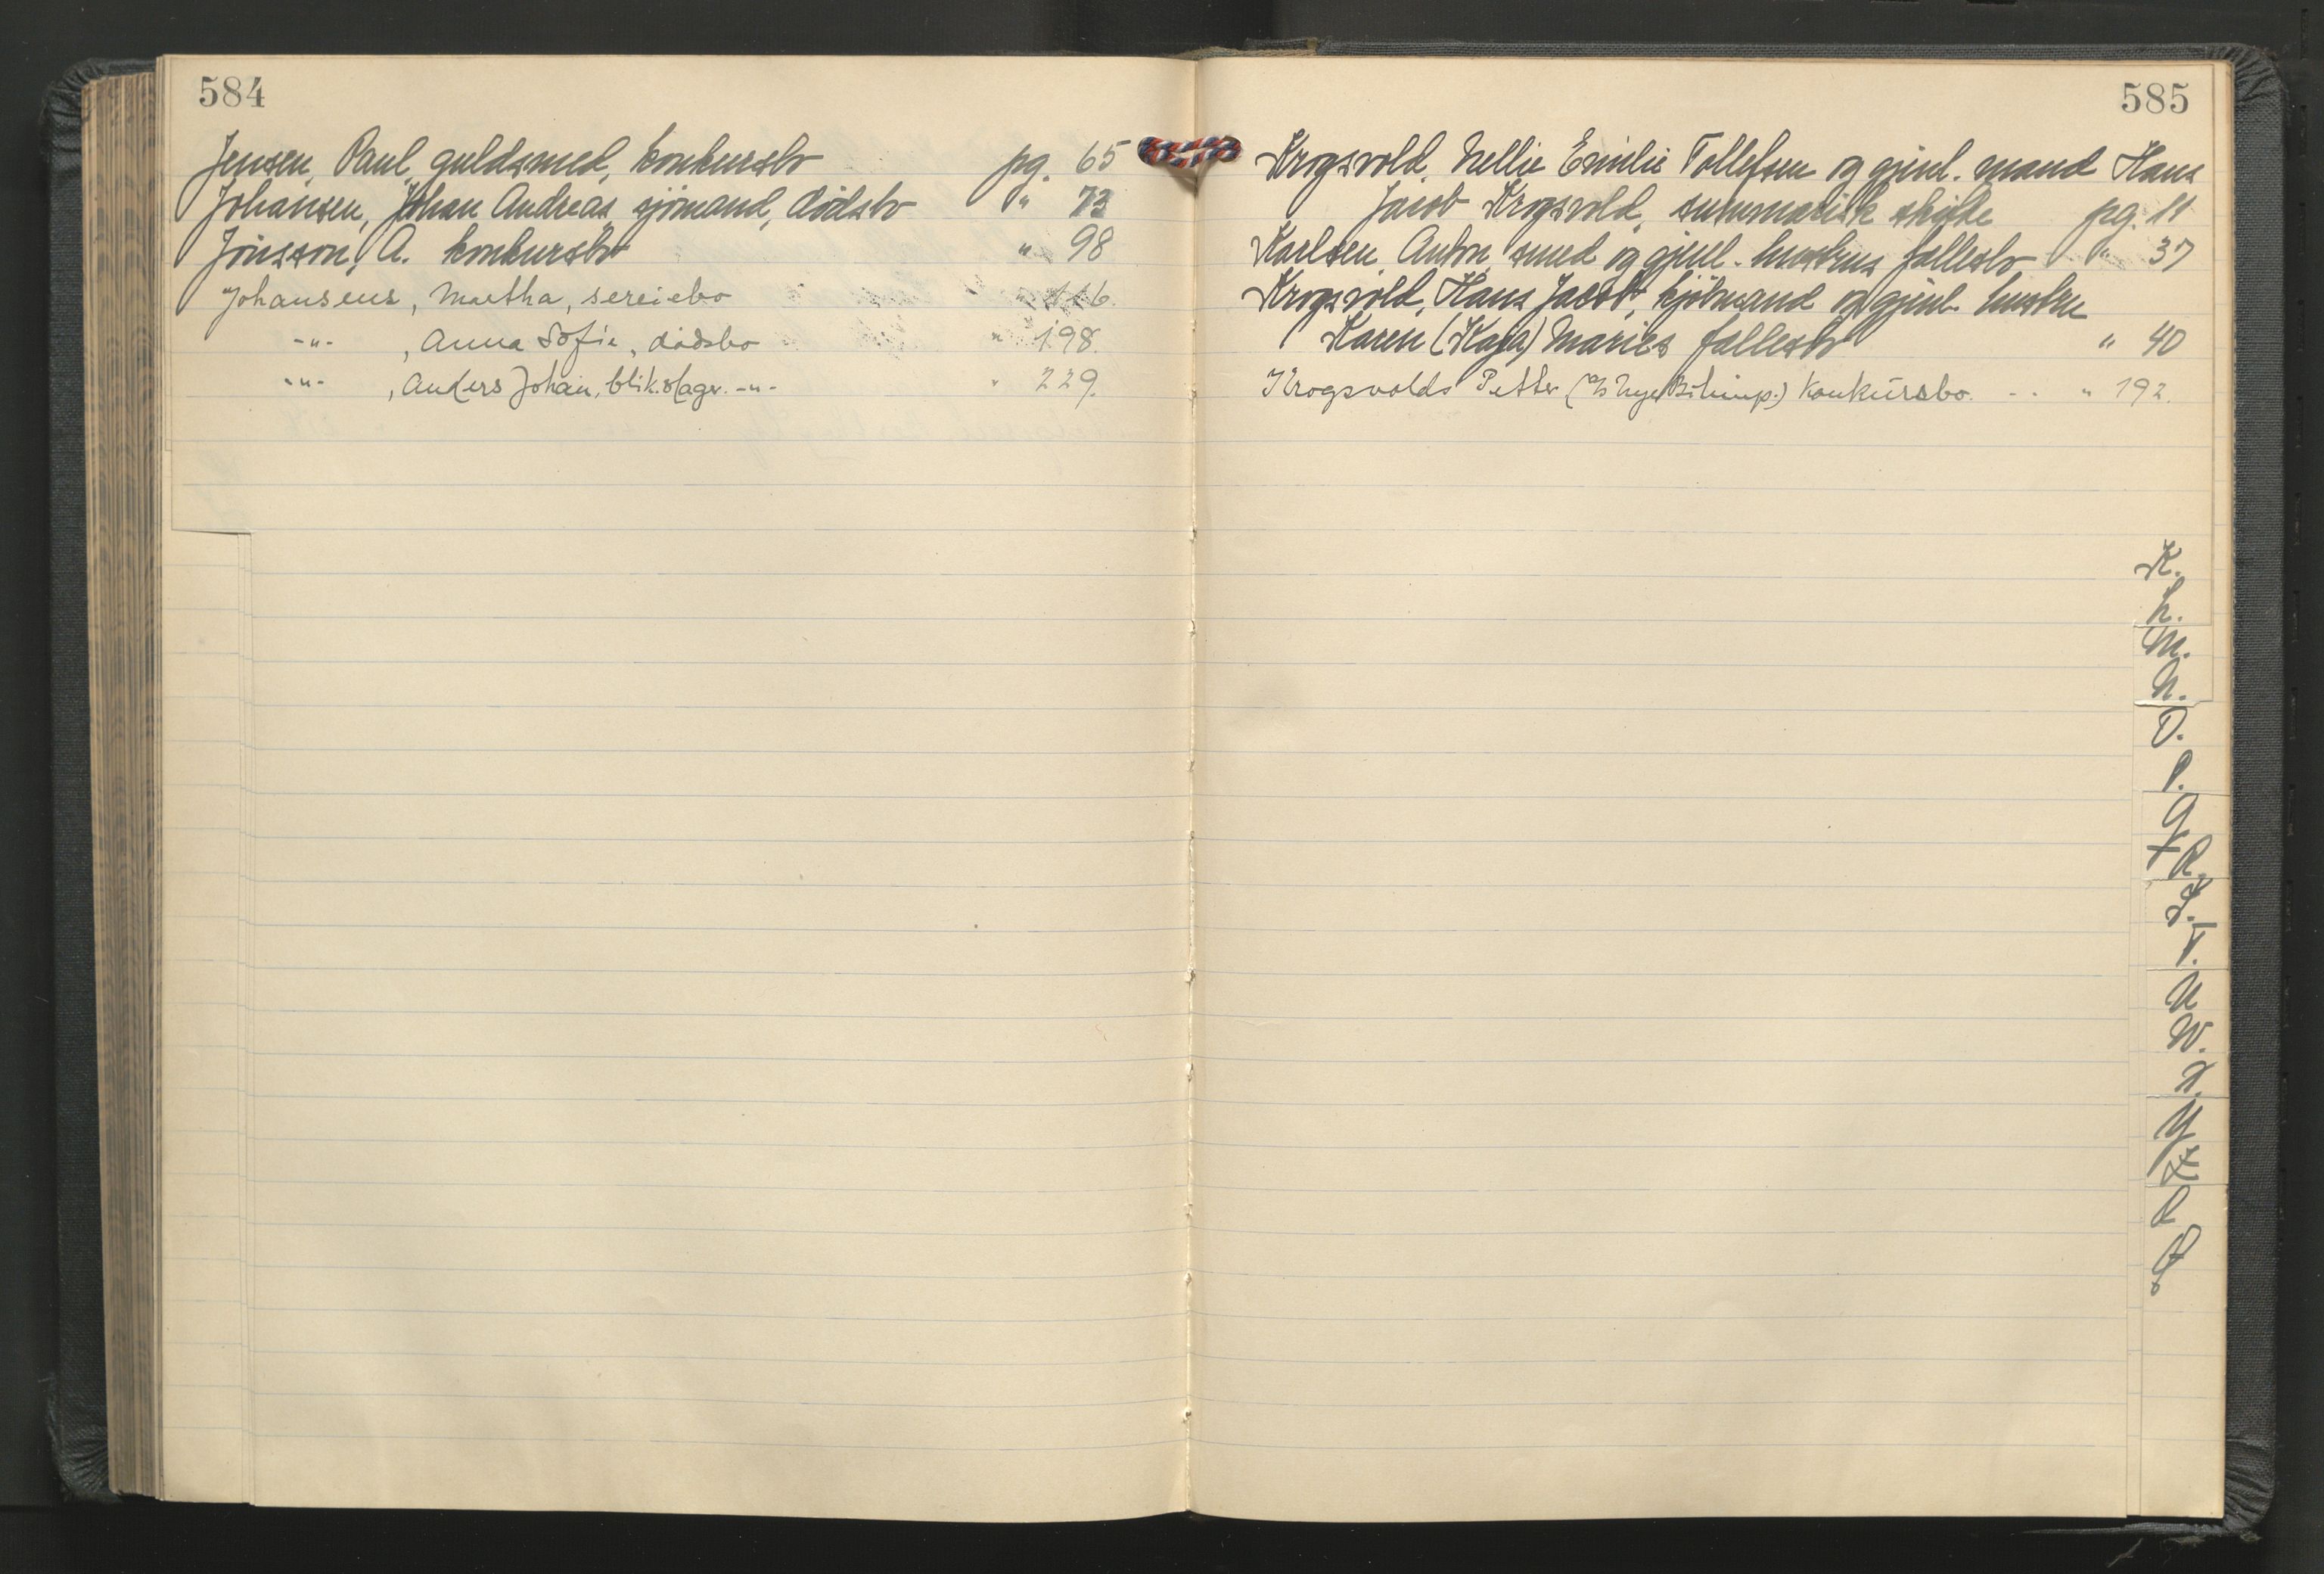 584
Jensen, Paul, guldsmed, konkursbo pg. 65
Johansen, Johan Andreas, sjömand, dödsbo " 73
Jönsson, A. konkursbo " 98
Johansens, Martha, sereiebo " 116.
-"- , Anna Sofie, dødsbo " 198.
-"- , Anders Johan, blik.slager. -"- " 229.
585
Krogsvold, Nellie Emilie Tollefsen og gjenl. mand Hans
Jacob Krogsvold, summarisk skifte pg. 11
Karlsen, Anton, smed og gjenl. hustrus fællesbo " 37
Krogsvold, Hans Jacob, kjöbmand og gjenl. hustru
Karen (Kaja) Maries fællesbo " 40
Krogsvolds Petter Konkursbo. " 192.
K.
L.
M.
N.
O.
P.
Q
R.
S.
T.
U
W.
X.
Y
Z